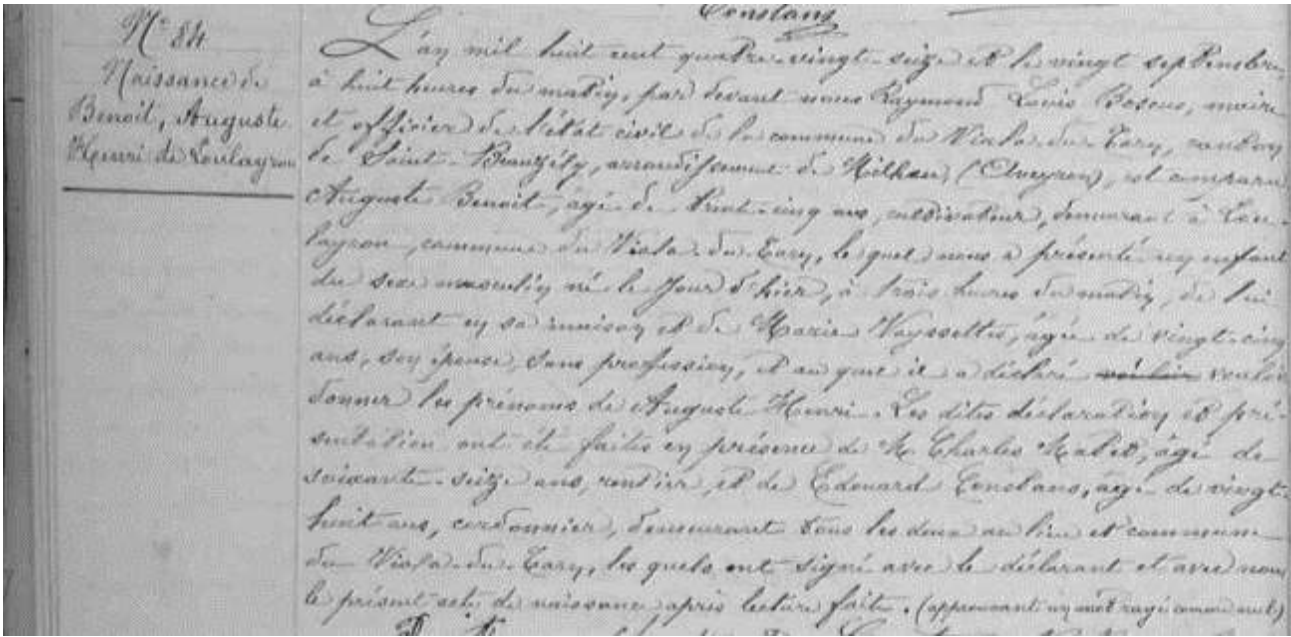 Constans
N° 84
Naissance de
Benoit, Auguste
Henri de Loulayrou
L'an mil huit cent quatre-vingt-seize et le vingt septembre
à huit heures du matin, par devant nous Raymond Louis Boscus, maire
et officier de l'état civil de la commune du Viala-du-Tarn, canton
de Saint-Beauzély, arrondissement de Milhau, (Aveyron), est comparu
Auguste Benoit, âgé de trente-cinq ans, cultivateur, demeurant à Lou-
layrou, commune du Viala-du-Tarn, le quel nous a présenté un enfant
du sexe masculin né le jour d'hier, à trois heures du matin, de lui
déclarant en sa maison et de Marie Vayssettes, âgée de vingt-cinq
ans, son épouse, sans profession, et au quel il a déclaré vouloir vouloir
donner les prénoms de Auguste Henri. Les dites déclaration et pré-
sentation ont été faites en présence de M. Charles Malet, âgé de
soixante-seize ans, rentier, et de Edouard Constans, âgé de vingt-
huit ans, cordonnier, demeurant tous les deux au lieu et commune
du Viala-du-Tarn, les quels ont signé avec le déclarant et avec nous
le présent acte de naissance après lecture faite. (approuvant un mot rayé comme nul)